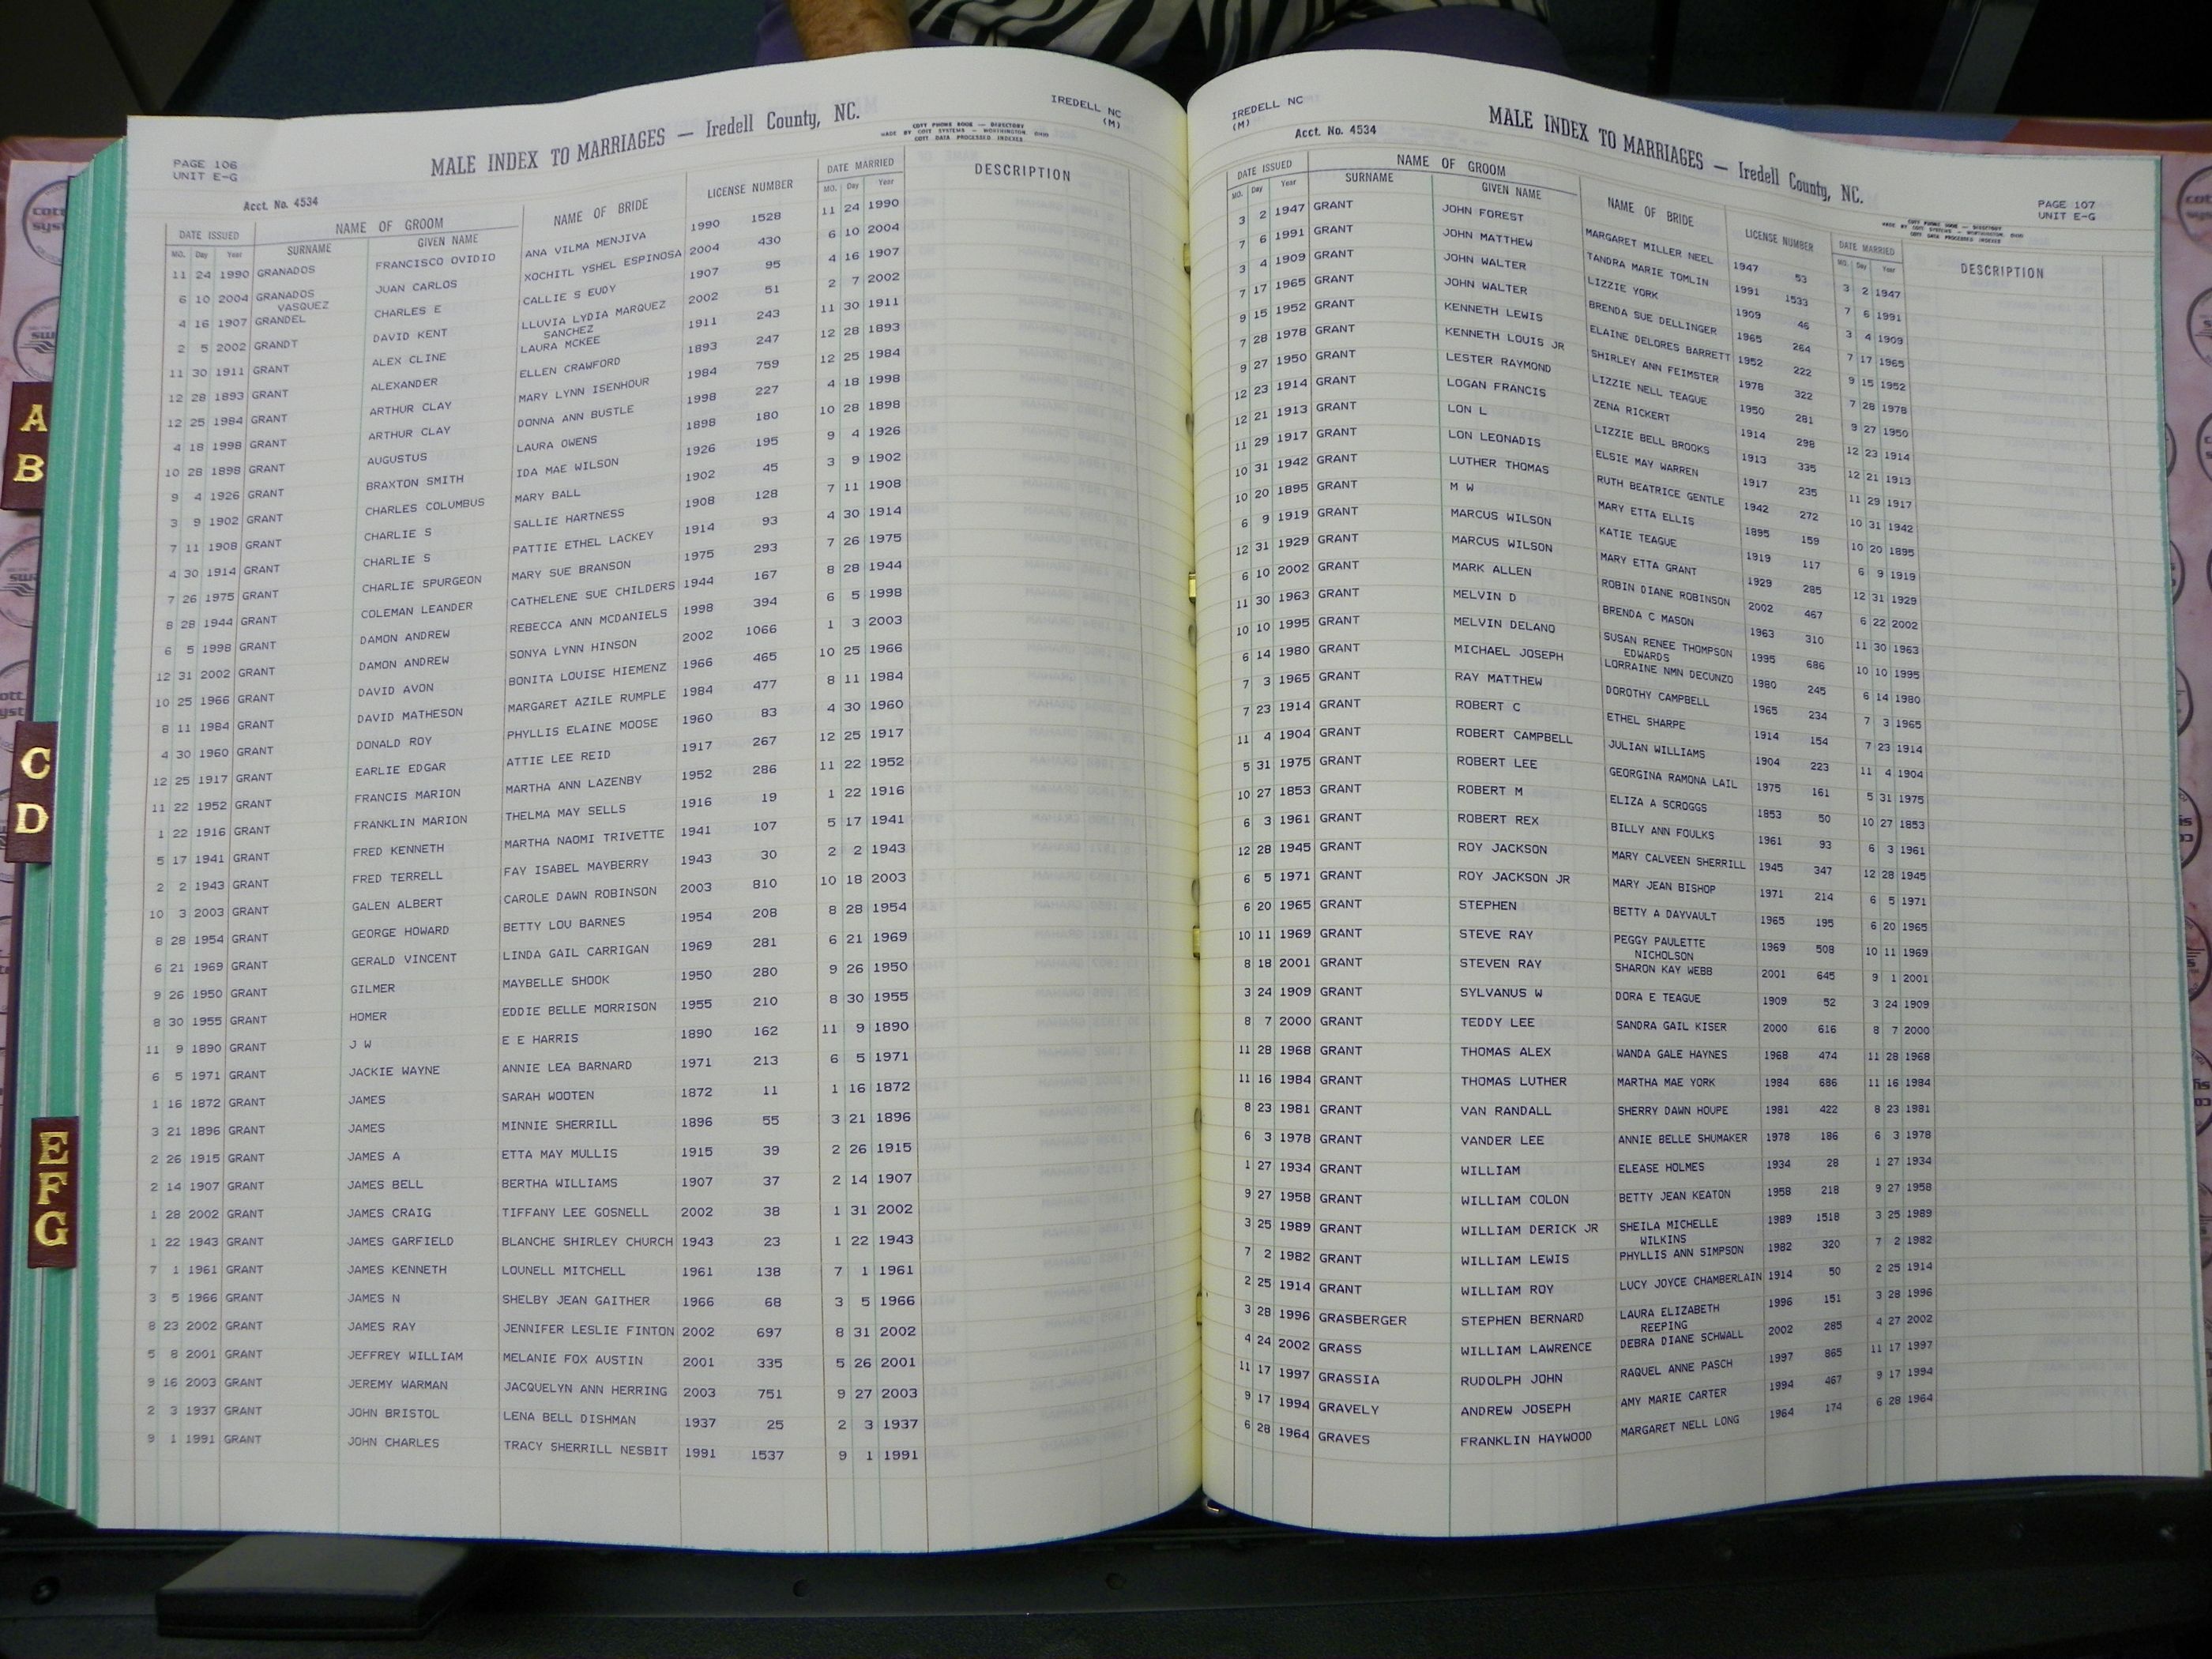 IREDELL NC
(M)
PAGE 106
UNIT E-G
MALE INDEX TO MARRIAGES — Iredell County, NC.
COTT PHONE BOOK — DIRECTORY
MADE BY COTT SYSTEMS — WORTHINGTON OHIO
COTT DATA PROCESSED INDEXES
Acct. No. 4534
DATE ISSUED NAME OF GROOM NAME OF BRIDE LICENSE NUMBER DATE MARRIED DESCRIPTION
MO. Day Year SURNAME GIVEN NAME MO. Day Year
11 24 1990 GRANADOS FRANCISCO OVIDIO ANA VILMA MENJIVA 1990 1528 11 24 1990
6 10 2004 GRANADOS JUAN CARLOS XOCHITL YSHEL ESPINOSA 2004 430 6 10 2004
VASQUEZ
4 16 1907 GRANDEL CHARLES E CALLIE S EUDY 1907 95 4 16 1907
2 5 2002 GRANDT DAVID KENT LLUVIA LYDIA MARQUEZ 2002 51 2 7 2002
SANCHEZ
11 30 1911 GRANT ALEX CLINE LAURA MCKEE 1911 243 11 30 1911
12 28 1893 GRANT ALEXANDER ELLEN CRAWFORD 1893 247 12 28 1893
12 25 1984 GRANT ARTHUR CLAY MARY LYNN ISENHOUR 1984 759 12 25 1984
4 18 1998 GRANT ARTHUR CLAY DONNA ANN BUSTLE 1998 227 4 18 1998
10 28 1898 GRANT AUGUSTUS LAURA OWENS 1898 180 10 28 1898
9 4 1926 GRANT BRAXTON SMITH IDA MAE WILSON 1926 195 9 4 1926
3 9 1902 GRANT CHARLES COLUMBUS MARY BALL 1902 45 3 9 1902
7 11 1908 GRANT CHARLIE S SALLIE HARTNESS 1908 128 7 11 1908
4 30 1914 GRANT CHARLIE S PATTIE ETHEL LACKEY 1914 93 4 30 1914
7 26 1975 GRANT CHARLIE SPURGEON MARY SUE BRANSON 1975 293 7 26 1975
8 28 1944 GRANT COLEMAN LEANDER CATHELENE SUE CHILDERS 1944 167 8 28 1944
6 5 1998 GRANT DAMON ANDREW REBECCA ANN MCDANIELS 1998 394 6 5 1998
12 31 2002 GRANT DAMON ANDREW SONYA LYNN HINSON 2002 1066 1 3 2003
10 25 1966 GRANT DAVID AVON BONITA LOUISE HIEMENZ 1966 465 10 25 1966
8 11 1984 GRANT DAVID MATHESON MARGARET AZILE RUMPLE 1984 477 8 11 1984
4 30 1960 GRANT DONALD ROY PHYLLIS ELAINE MOOSE 1960 83 4 30 1960
12 25 1917 GRANT EARLIE EDGAR ATTIE LEE REID 1917 267 12 25 1917
11 22 1952 GRANT FRANCIS MARION MARTHA ANN LAZENBY 1952 286 11 22 1952
1 22 1916 GRANT FRANKLIN MARION THELMA MAY SELLS 1916 19 1 22 1916
5 17 1941 GRANT FRED KENNETH MARTHA NAOMI TRIVETTE 1941 107 5 17 1941
2 2 1943 GRANT FRED TERRELL FAY ISABEL MAYBERRY 1943 30 2 2 1943
10 3 2003 GRANT GALEN ALBERT CAROLE DAWN ROBINSON 2003 810 10 18 2003
8 28 1954 GRANT GEORGE HOWARD BETTY LOU BARNES 1954 208 8 28 1954
6 21 1969 GRANT GERALD VINCENT LINDA GAIL CARRIGAN 1969 281 6 21 1969
9 26 1950 GRANT GILMER MAYBELLE SHOOK 1950 280 9 26 1950
8 30 1955 GRANT HOMER EDDIE BELLE MORRISON 1955 210 8 30 1955
11 9 1890 GRANT J W E E HARRIS 1890 162 11 9 1890
6 5 1971 GRANT JACKIE WAYNE ANNIE LEA BARNARD 1971 213 6 5 1971
1 16 1872 GRANT JAMES SARAH WOOTEN 1872 11 1 16 1872
3 21 1896 GRANT JAMES MINNIE SHERRILL 1896 55 3 21 1896
2 26 1915 GRANT JAMES A ETTA MAY MULLIS 1915 39 2 26 1915
2 14 1907 GRANT JAMES BELL BERTHA WILLIAMS 1907 37 2 14 1907
1 28 2002 GRANT JAMES CRAIG TIFFANY LEE GOSNELL 2002 38 1 31 2002
1 22 1943 GRANT JAMES GARFIELD BLANCHE SHIRLEY CHURCH 1943 23 1 22 1943
7 1 1961 GRANT JAMES KENNETH LOUNELL MITCHELL 1961 138 7 1 1961
3 5 1966 GRANT JAMES N SHELBY JEAN GAITHER 1966 68 3 5 1966
8 23 2002 GRANT JAMES RAY JENNIFER LESLIE FINTON 2002 697 8 31 2002
5 8 2001 GRANT JEFFREY WILLIAM MELANIE FOX AUSTIN 2001 335 5 26 2001
9 16 2003 GRANT JEREMY WARMAN JACQUELYN ANN HERRING 2003 751 9 27 2003
2 3 1937 GRANT JOHN BRISTOL LENA BELL DISHMAN 1937 25 2 3 1937
9 1 1991 GRANT JOHN CHARLES TRACY SHERRILL NESBIT 1991 1537 9 1 1991
A
B
C
D
E
F
G
IREDELL NC
(M)
Acct. No. 4534
MALE INDEX TO MARRIAGES — Iredell County, NC.
PAGE 107
UNIT E-G
COTT PHONE BOOK — DIRECTORY
MADE BY COTT SYSTEMS — WORTHINGTON OHIO
COTT DATA PROCESSED INDEXES
DATE ISSUED NAME OF GROOM NAME OF BRIDE LICENSE NUMBER DATE MARRIED DESCRIPTION
MO. Day Year SURNAME GIVEN NAME MO. Day Year
3 2 1947 GRANT JOHN FOREST MARGARET MILLER NEEL 1947 53 3 2 1947
7 6 1991 GRANT JOHN MATTHEW TANDRA MARIE TOMLIN 1991 1533 7 6 1991
3 4 1909 GRANT JOHN WALTER LIZZIE YORK 1909 46 3 4 1909
7 17 1965 GRANT JOHN WALTER BRENDA SUE DELLINGER 1965 264 7 17 1965
9 15 1952 GRANT KENNETH LEWIS ELAINE DELORES BARRETT 1952 222 9 15 1952
7 28 1978 GRANT KENNETH LOUIS JR SHIRLEY ANN FEIMSTER 1978 322 7 28 1978
9 27 1950 GRANT LESTER RAYMOND LIZZIE NELL TEAGUE 1950 281 9 27 1950
12 23 1914 GRANT LOGAN FRANCIS ZENA RICKERT 1914 298 12 23 1914
12 21 1913 GRANT LON L LIZZIE BELL BROOKS 1913 335 12 21 1913
11 29 1917 GRANT LON LEONADIS ELSIE MAY WARREN 1917 235 11 29 1917
10 31 1942 GRANT LUTHER THOMAS RUTH BEATRICE GENTLE 1942 272 10 31 1942
10 20 1895 GRANT M W MARY ETTA ELLIS 1895 159 10 20 1895
6 9 1919 GRANT MARCUS WILSON KATIE TEAGUE 1919 117 6 9 1919
12 31 1929 GRANT MARCUS WILSON MARY ETTA GRANT 1929 285 12 31 1929
6 10 2002 GRANT MARK ALLEN ROBIN DIANE ROBINSON 2002 467 6 22 2002
11 30 1963 GRANT MELVIN D BRENDA C MASON 1963 310 11 30 1963
10 10 1995 GRANT MELVIN DELANO SUSAN RENEE THOMPSON 1995 686 10 10 1995
EDWARDS
6 14 1980 GRANT MICHAEL JOSEPH LORRAINE NMN DECUNZO 1980 245 6 14 1980
7 3 1965 GRANT RAY MATTHEW DOROTHY CAMPBELL 1965 234 7 3 1965
7 23 1914 GRANT ROBERT C ETHEL SHARPE 1914 154 7 23 1914
11 4 1904 GRANT ROBERT CAMPBELL JULIAN WILLIAMS 1904 223 11 4 1904
5 31 1975 GRANT ROBERT LEE GEORGINA RAMONA LAIL 1975 161 5 31 1975
10 27 1853 GRANT ROBERT M ELIZA A SCROGGS 1853 50 10 27 1853
6 3 1961 GRANT ROBERT REX BILLY ANN FOULKS 1961 93 6 3 1961
12 28 1945 GRANT ROY JACKSON MARY CALVEEN SHERRILL 1945 347 12 28 1945
6 5 1971 GRANT ROY JACKSON JR MARY JEAN BISHOP 1971 214 6 5 1971
6 20 1965 GRANT STEPHEN BETTY A DAYVAULT 1965 195 6 20 1965
10 11 1969 GRANT STEVE RAY PEGGY PAULETTE 1969 508 10 11 1969
NICHOLSON
8 18 2001 GRANT STEVEN RAY SHARON KAY WEBB 2001 645 9 1 2001
3 24 1909 GRANT SYLVANUS W DORA E TEAGUE 1909 52 3 24 1909
8 7 2000 GRANT TEDDY LEE SANDRA GAIL KISER 2000 616 8 7 2000
11 28 1968 GRANT THOMAS ALEX WANDA GALE HAYNES 1968 474 11 28 1968
11 16 1984 GRANT THOMAS LUTHER MARTHA MAE YORK 1984 686 11 16 1984
8 23 1981 GRANT VAN RANDALL SHERRY DAWN HOUPE 1981 422 8 23 1981
6 3 1978 GRANT VANDER LEE ANNIE BELLE SHUMAKER 1978 186 6 3 1978
1 27 1934 GRANT WILLIAM ELEASE HOLMES 1934 28 1 27 1934
9 27 1958 GRANT WILLIAM COLON BETTY JEAN KEATON 1958 218 9 27 1958
3 25 1989 GRANT WILLIAM DERICK JR SHEILA MICHELLE 1989 1518 3 25 1989
WILKINS
7 2 1982 GRANT WILLIAM LEWIS PHYLLIS ANN SIMPSON 1982 320 7 2 1982
2 25 1914 GRANT WILLIAM ROY LUCY JOYCE CHAMBERLAIN 1914 50 2 25 1914
3 28 1996 GRASBERGER STEPHEN BERNARD LAURA ELIZABETH 1996 151 3 28 1996
REEPING
4 24 2002 GRASS WILLIAM LAWRENCE DEBRA DIANE SCHWALL 2002 285 4 27 2002
11 17 1997 GRASSIA RUDOLPH JOHN RAQUEL ANNE PASCH 1997 865 11 17 1997
9 17 1994 GRAVELY ANDREW JOSEPH AMY MARIE CARTER 1994 467 9 17 1994
6 28 1964 GRAVES FRANKLIN HAYWOOD MARGARET NELL LONG 1964 174 6 28 1964